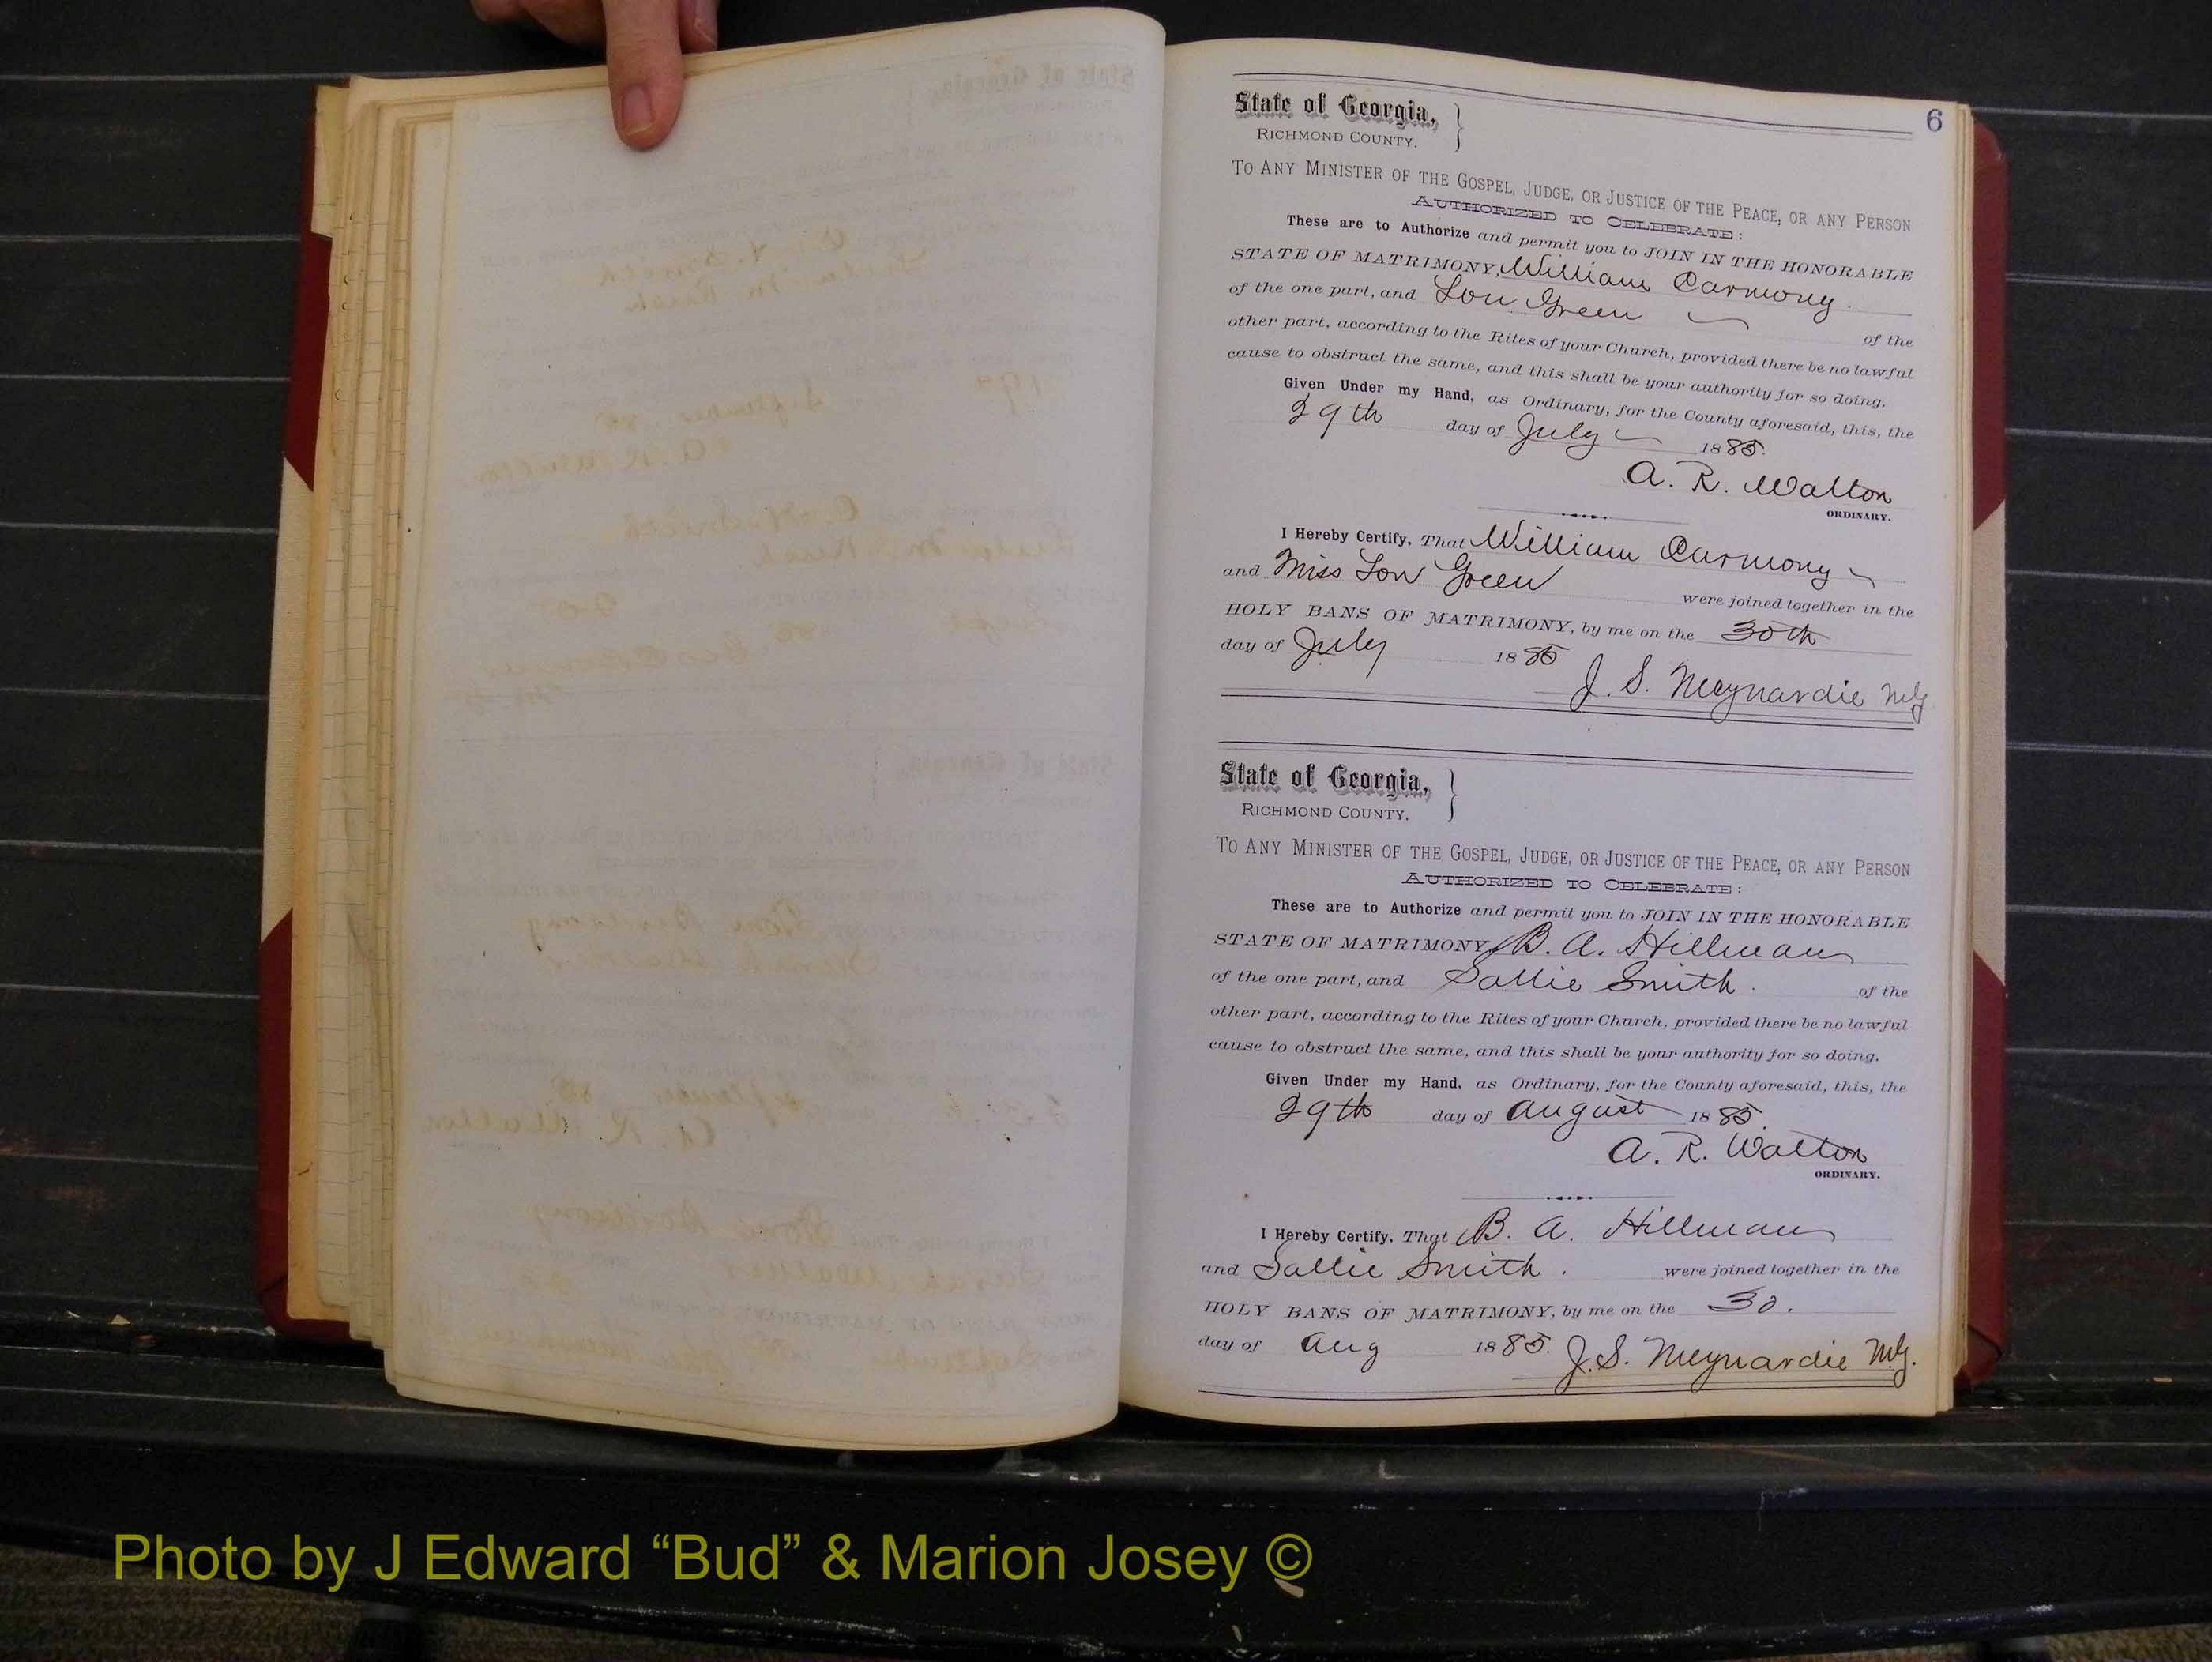 6
State of Georgia, }
RICHMOND COUNTY.
TO ANY MINISTER OF THE GOSPEL, JUDGE, OR JUSTICE OF THE PEACE, OR ANY PERSON
AUTHORIZED TO CELEBRATE:
These are to Authorize and permit you to JOIN IN THE HONORABLE
STATE OF MATRIMONY, William Carmony
of the one part, and Lou Green of the
other part, according to the Rites of your Church, provided there be no lawful
cause to obstruct the same, and this shall be your authority for so doing.
Given Under my Hand, as Ordinary, for the County aforesaid, this, the
29th day of July 1885.
A. R. Walton
ORDINARY.
I Hereby Certify, That William Carmony
and Miss Lou Green were joined together in the
HOLY BANS OF MATRIMONY, by me on the 30th
day of July 1885
J. S. Meynardie M.G.
State of Georgia, }
RICHMOND COUNTY.
TO ANY MINISTER OF THE GOSPEL, JUDGE, OR JUSTICE OF THE PEACE, OR ANY PERSON
AUTHORIZED TO CELEBRATE:
These are to Authorize and permit you to JOIN IN THE HONORABLE
STATE OF MATRIMONY, B. A. Hillman
of the one part, and Sallie Smith. of the
other part, according to the Rites of your Church, provided there be no lawful
cause to obstruct the same, and this shall be your authority for so doing.
Given Under my Hand, as Ordinary, for the County aforesaid, this, the
29th day of August 1885.
A. R. Walton
ORDINARY.
I Hereby Certify, That B. A. Hillman
and Sallie Smith. were joined together in the
HOLY BANS OF MATRIMONY, by me on the 30.
day of Aug 1885. J. S. Meynardie M.G.
Photo by J Edward “Bud” & Marion Josey ©